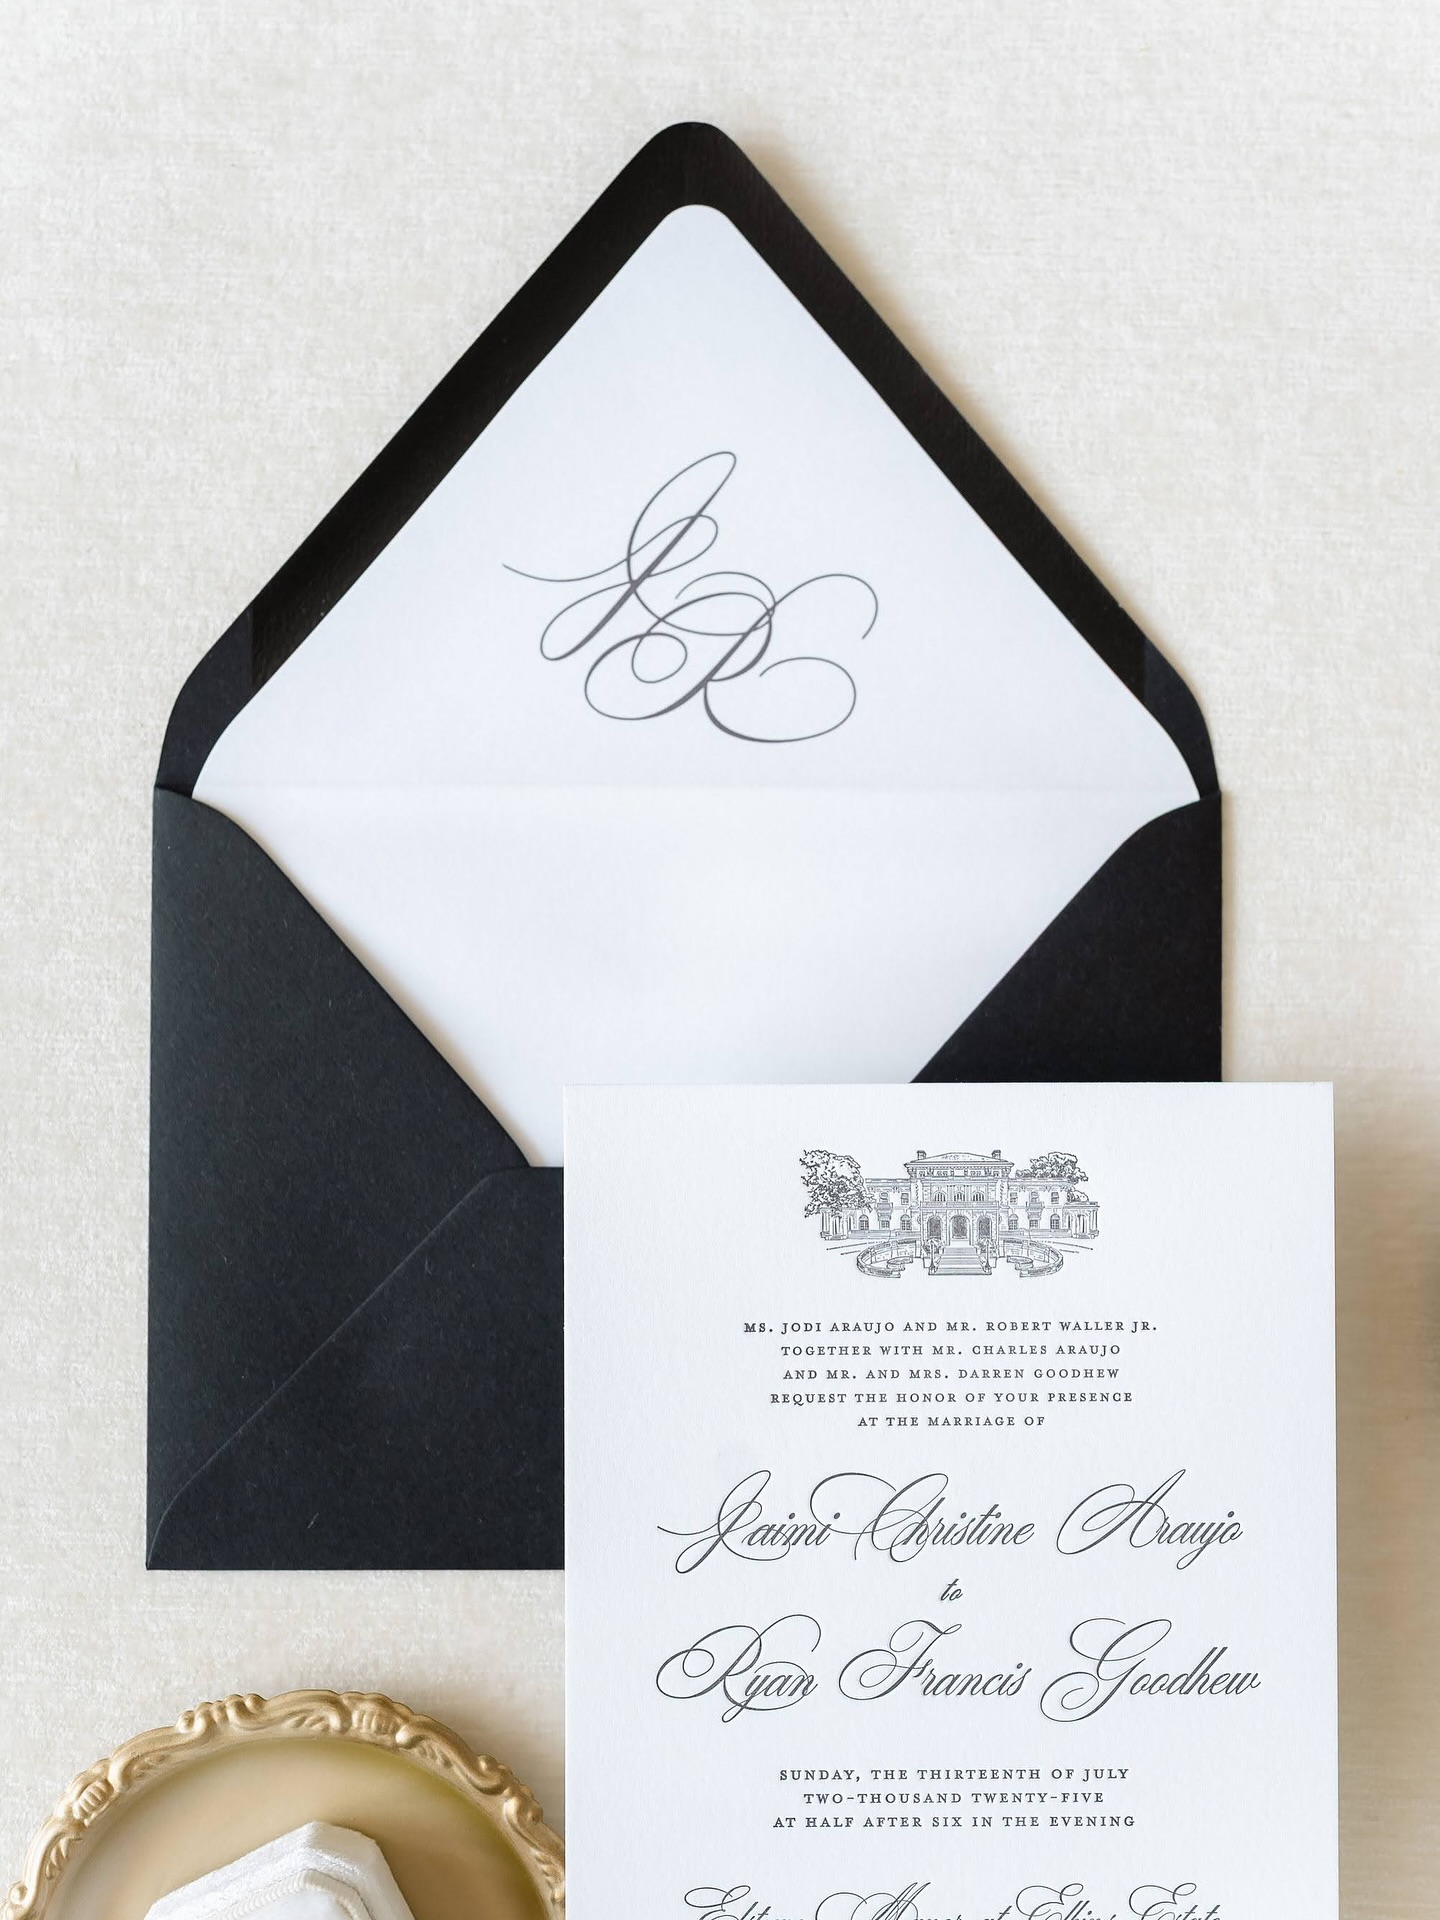 JR
MS. JODI ARAUJO AND MR. ROBERT WALLER JR.
TOGETHER WITH MR. CHARLES ARAUJO
AND MR. AND MRS. DARREN GOODHEW
REQUEST THE HONOR OF YOUR PRESENCE
AT THE MARRIAGE OF
Jaimi Christine Araujo
to
Ryan Francis Goodhew
SUNDAY, THE THIRTEENTH OF JULY
TWO-THOUSAND TWENTY-FIVE
AT HALF AFTER SIX IN THE EVENING
Manor at Elkins Estate